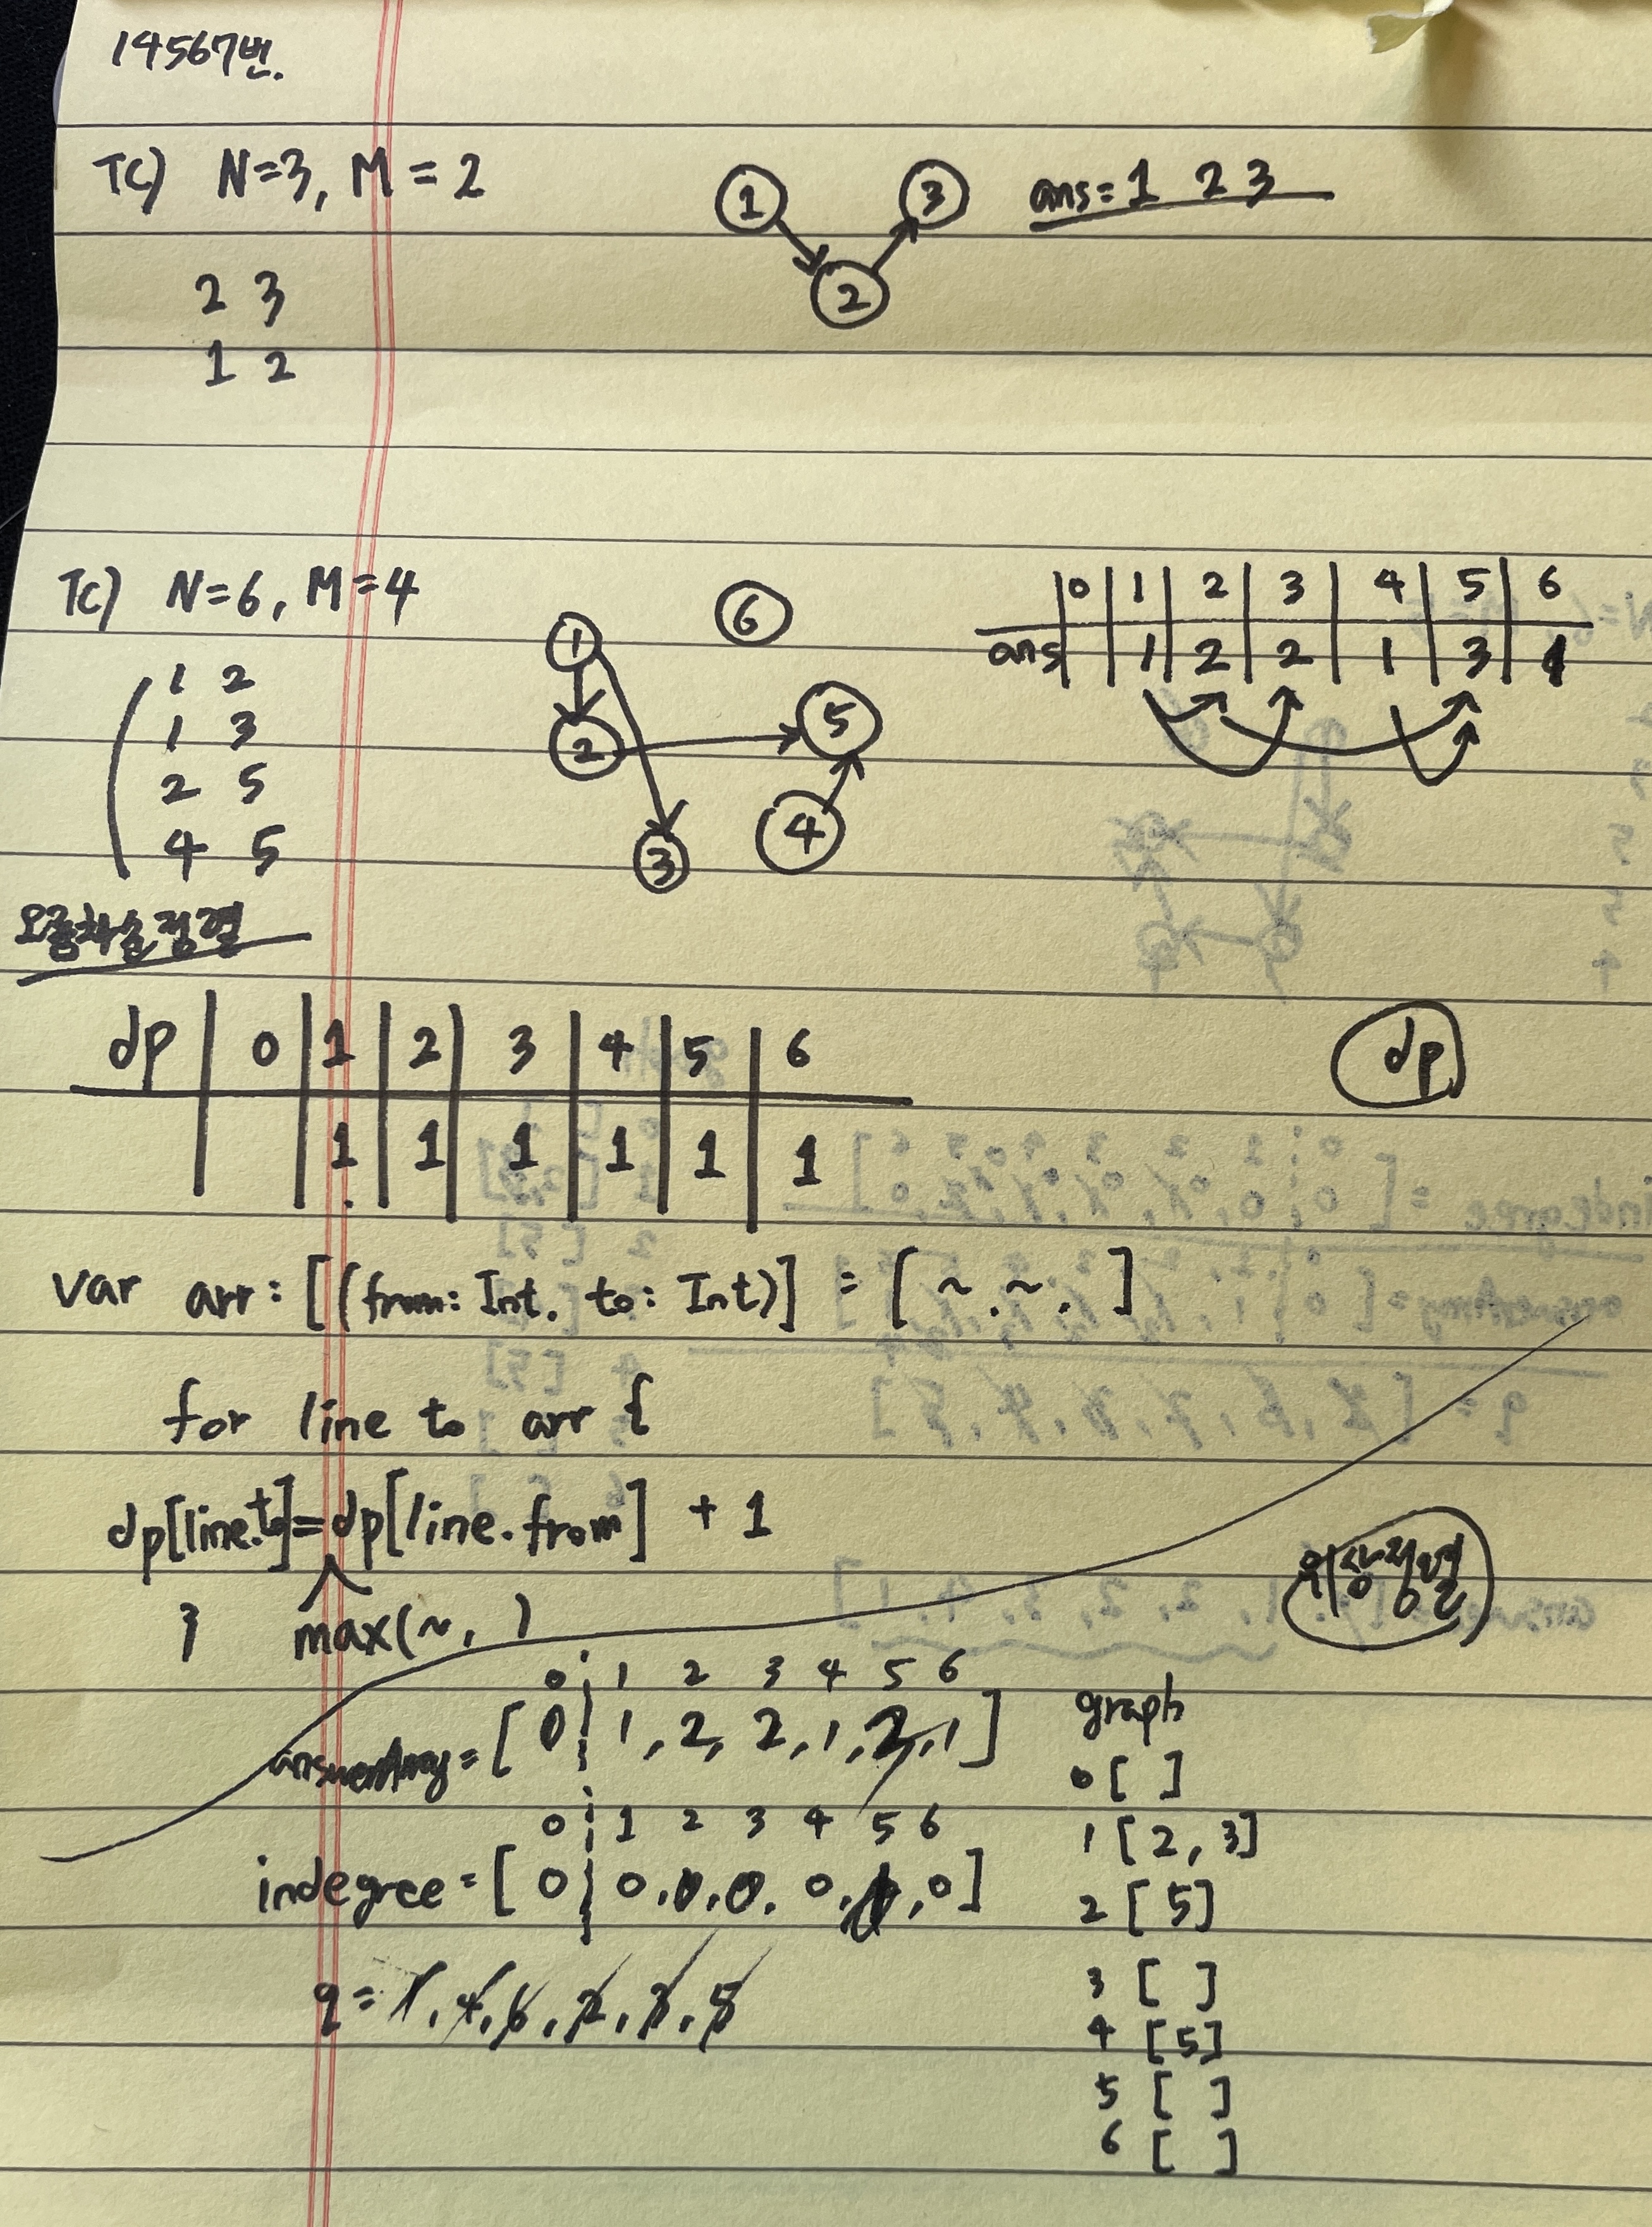 14567번.
TC) N=3, M=2
1 2 3
ans=1 2 3
2 3
1 2
TC) N=6, M=4
1 2
1 3
2 5
4 5
1 2 3 4 5 6
0 1 2 3 4 5 6
ans 1 2 2 1 3 1
오름차순정렬
dp 0 1 2 3 4 5 6
1 1 1 1 1 1
dp
var arr: [(from: Int. to: Int)] = [ ~.~. ]
for line to arr {
dp[line.to]=dp[line.from] + 1
} max(~, )
위상정렬
0 1 2 3 4 5 6
answerArray=[ 0 1, 2, 2, 1, 2, 1 ]
0 1 2 3 4 5 6
indegree=[ 0 0.0.0. 0. , 0 ]
q= 1, 4, 6, 2, 3, 5
graph
0 [ ]
1 [ 2, 3]
2 [ 5]
3 [ ]
4 [ 5]
5 [ ]
6 [ ]